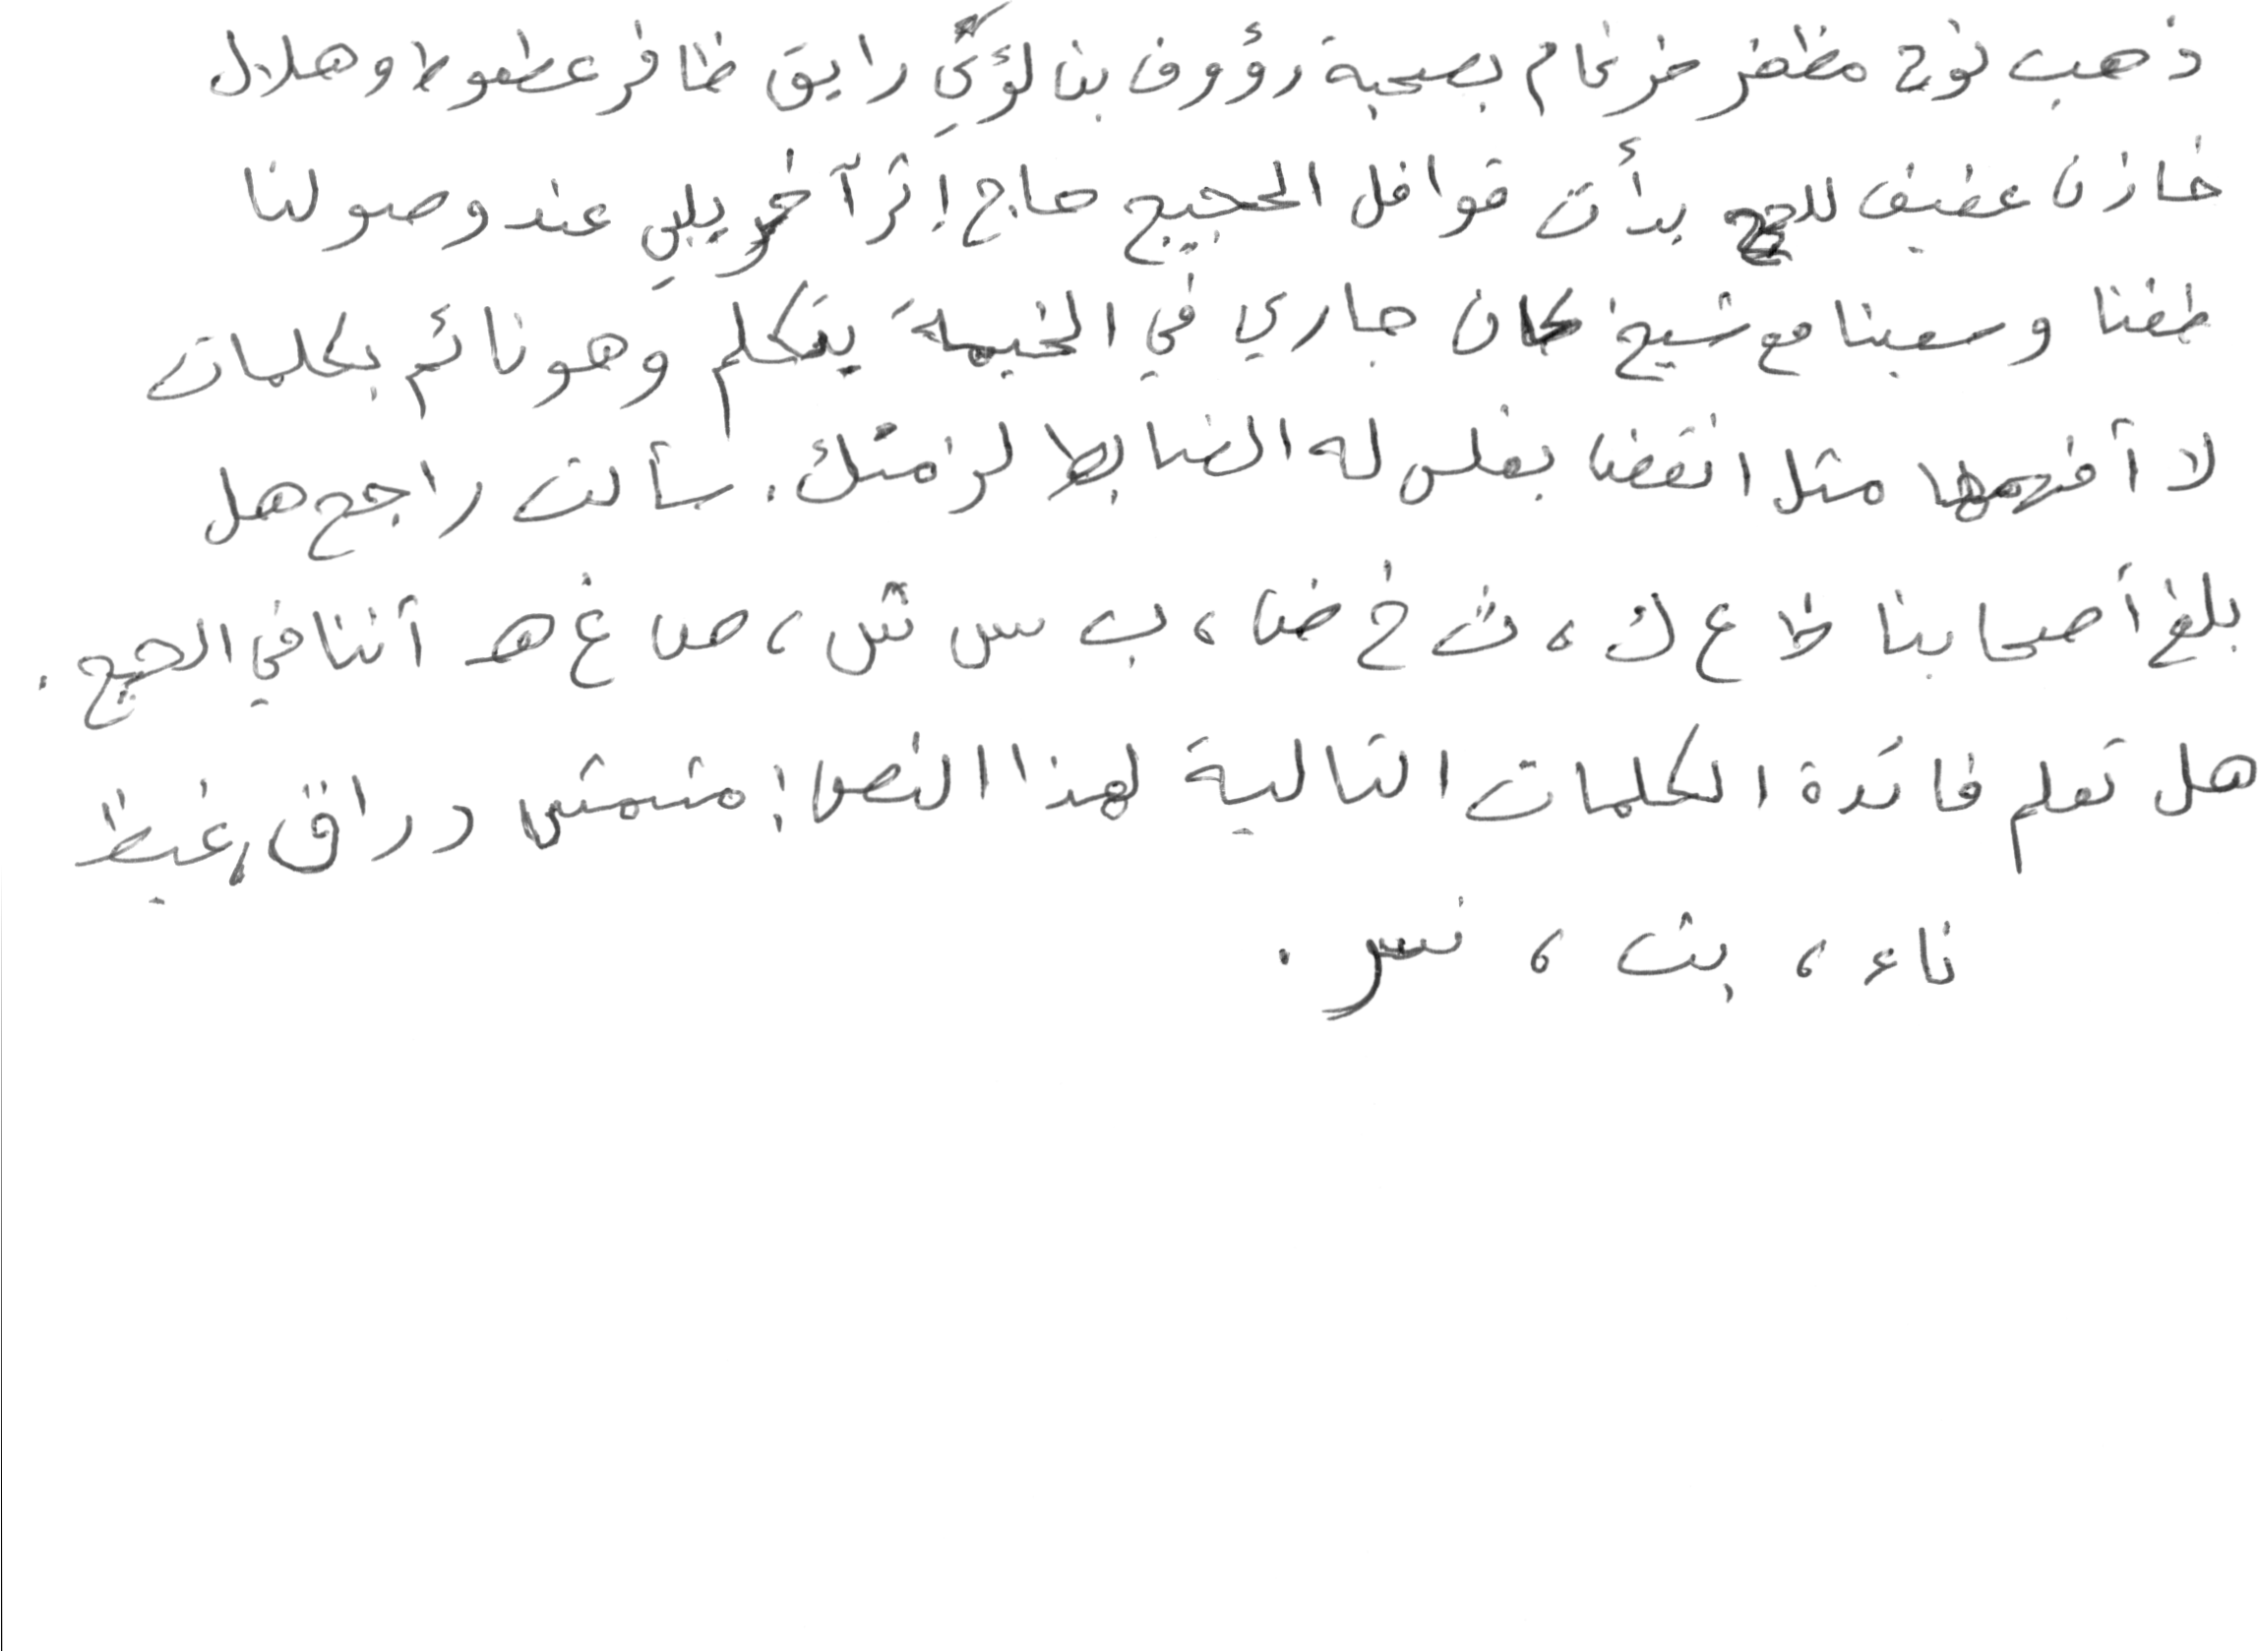 ذهب نوح مظفر ضرغام بصحبة رؤوف بن لؤي رايق ظافر عطعوط وهلال
خازن عفيف للحج بدأت قوافل الحجيج حاج إثر آخر يلبي عند وصولنا
طفنا وسعينا مع شيخ كان جاري في الخيمة يتكلم وهو نائم بكلمات
لا أفهمها مثل انقضنا بغلس له الضابط لزمتك. سألت راجح هل
بلغ أصحابنا ظ ع ك، ث خ ض، ب س ش، ص غ هـ أننا في الحج.
هل تعلم فائدة الكلمات التالية لهذا النص: مشمش دراق، غيظ
ناء، بث، نسر.